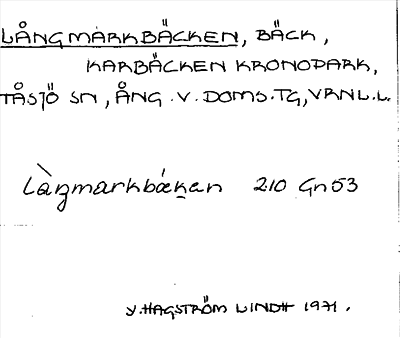 LÅNGMARKBÄCKEN, BÄCK,
KARBÄCKEN KRONOPARK,
TÅSJÖ SN, ÅNG. V. DOMS. TG, VRNL.L.
Làŋmarkbä́ḵen 210 Gn53
Y. HAGSTRÖM LINDH 1971.